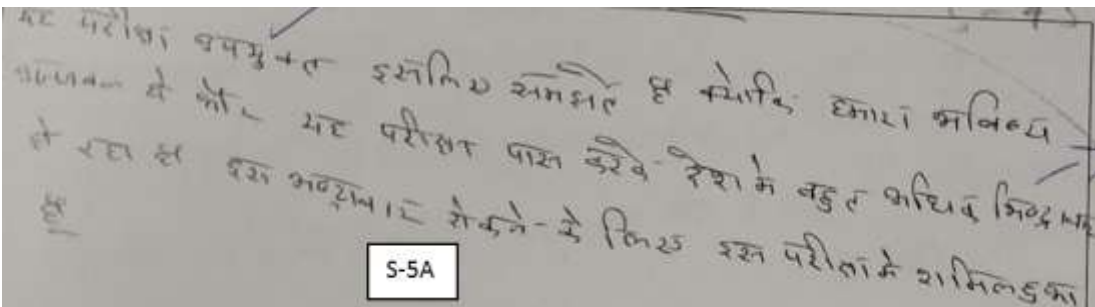 यह परीक्षा उपयुक्त इसलिए समझते है क्योकि हमारा भविष्य
उज्जवल हे और यह परीक्षा पास करके देश मे बहुत अधिक
हो रहा है इस भष्ट्राचार रोकने के लिए इस परीक्षा मे शामिल हुआ
हूँ
S-5A